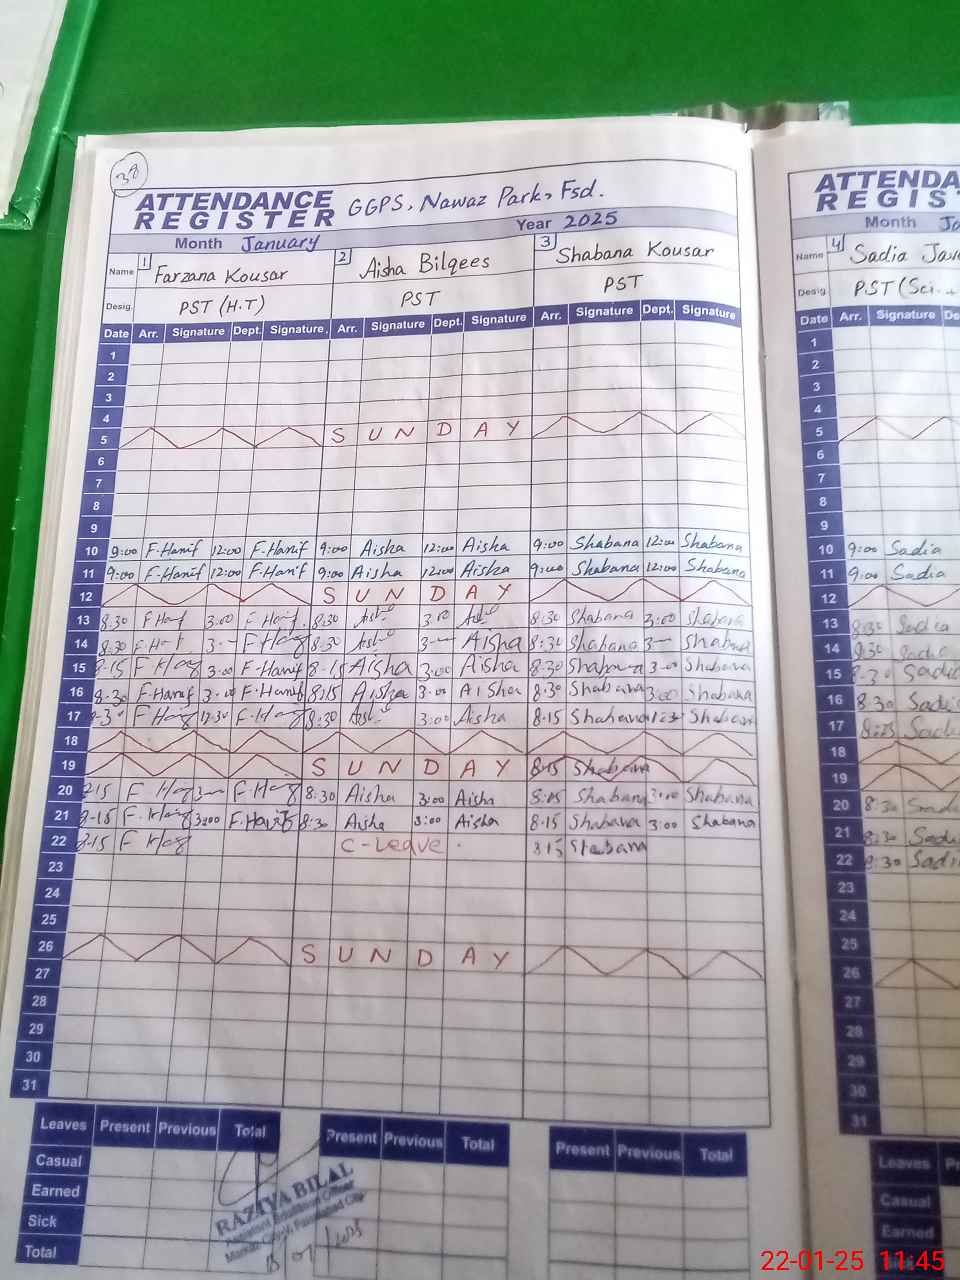 38
ATTENDANCE REGISTER GGPS, Nawaz Park, Fsd.
Month January Year 2025
Name 1 Farzana Kousar 2 Aisha Bilqees 3 Shabana Kousar
Desig. PST (H.T) PST PST
Date Arr. Signature Dept. Signature Arr. Signature Dept. Signature Arr. Signature Dept. Signature
1
2
3
4
5 SUNDAY
6
7
8
9
10 9:00 F.Hanif 12:00 F.Hanif 9:00 Aisha 12:00 Aisha 9:00 Shabana 12:00 Shabana
11 9:00 F.Hanif 12:00 F.Hanif 9:00 Aisha 12:00 Aisha 9:00 Shabana 12:00 Shabana
12 SUNDAY
13 8:30 3:00 8:30 3:00 8:30 Shabana 3:00 Shabana
14 8:30 8:30 Aisha 8:30 Shabana Shabana
15 8-15 3:00 F.Hanif 8-15 Aisha 3:00 Aisha 8:30 Shabana 3:00 Shabana
16 8:30 F.Hanif 3:00 F.Hanif 8:15 Aisha 3:00 Aisha 8:30 Shabana 3:00 Shabana
17 12:30 8:30 3:00 Aisha 8:15 Shabana Shabana
18
19 SUNDAY 8:15 Shabana
20 8:30 Aisha 3:00 Aisha 8:15 Shabana 3:00 Shabana
21 8-15 3:00 F.Hanif 8:30 Aisha 3:00 Aisha 8:15 Shabana 3:00 Shabana
22 8-15 C-Leave. 8:15 Shabana
23
24
25
26 SUNDAY
27
28
29
30
31
Leaves Present Previous Total Present Previous Total Present Previous Total
Casual
Earned
Sick
Total
RAZIYA BILAL
ATTENDA
REGIS
Month
Name 4 Sadia
Desig. PST (Sci.
Date Arr. Signature
1
2
3
4
5
6
7
8
9
10 9:00 Sadia
11 9:00 Sadia
12
13 8:30 Sadia
14 8:30
15 8:30
16 8:30
17
18
19
20 8:30
21 8:30
22 8:30
23
24
25
26
27
28
29
30
31
Leaves
Casual
Earned
22-01-25 11:45